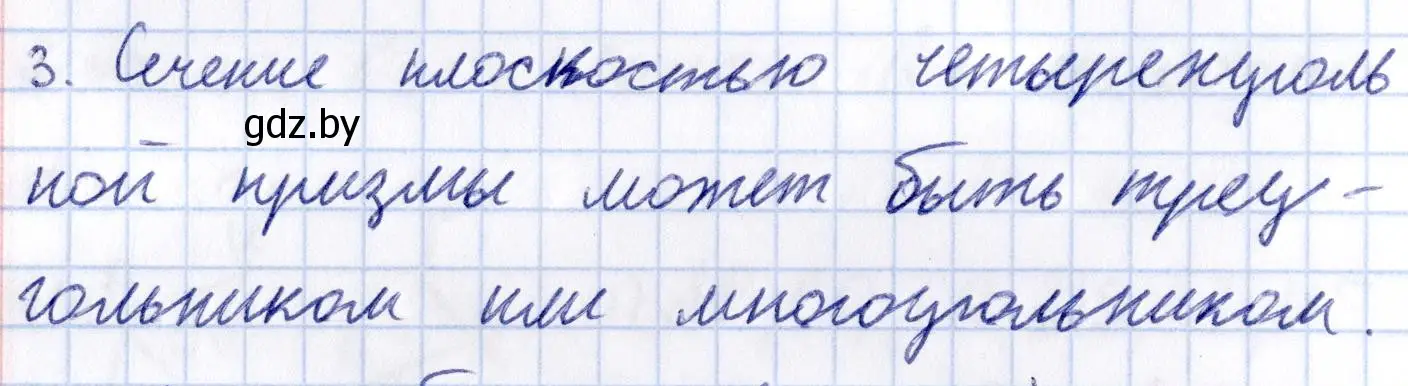 3. Сечение плоскостью четырехуголь
gdz.by
ной призмы может быть треу-
гольником или многоугольником.